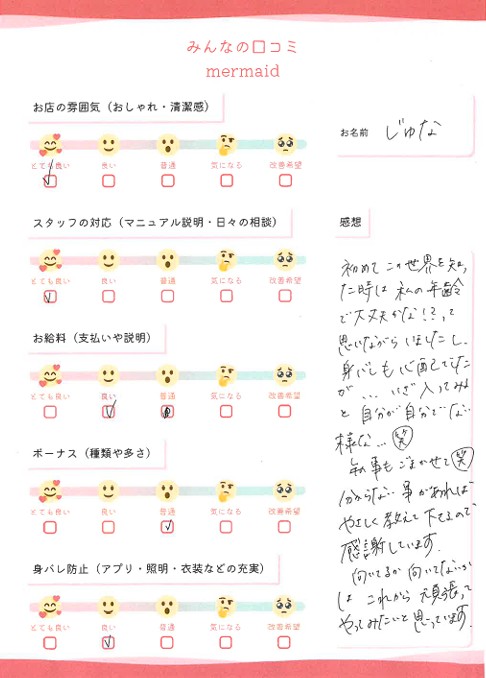 みんなの口コミ
mermaid
お店の雰囲気（おしゃれ・清潔感）
とても良い 良い 普通 気になる 改善希望
スタッフの対応（マニュアル説明・日々の相談）
とても良い 良い 普通 気になる 改善希望
お給料（支払いや説明）
とても良い 良い 普通 気になる 改善希望
ボーナス（種類や多さ）
とても良い 良い 普通 気になる 改善希望
身バレ防止（アプリ・照明・衣装などの充実）
とても良い 良い 普通 気になる 改善希望
お名前 じゅな
感想
初めてこの世界を知っ
た時は 私の年齢
で大丈夫かな!?って
思いながらいましたし、
身バレも心配でした
が... いざ入ってみる
と 自分が自分でない
様な... 笑
事もごまかせて 笑
分からない事があれば
やさしく教えて下さるので
感謝しています.
向いてるか向いてないか
は これから 頑張って
やってみたいと思っています.